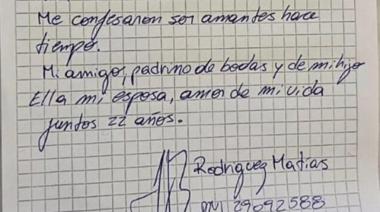 Me confesaron ser amantes hace
tiempo.
Mi amigo, padrino de bodas y de mi hijo
Ella mi esposa, amor de mi vida
juntos 22 años.
Rodriguez Matias
DNI 29092588